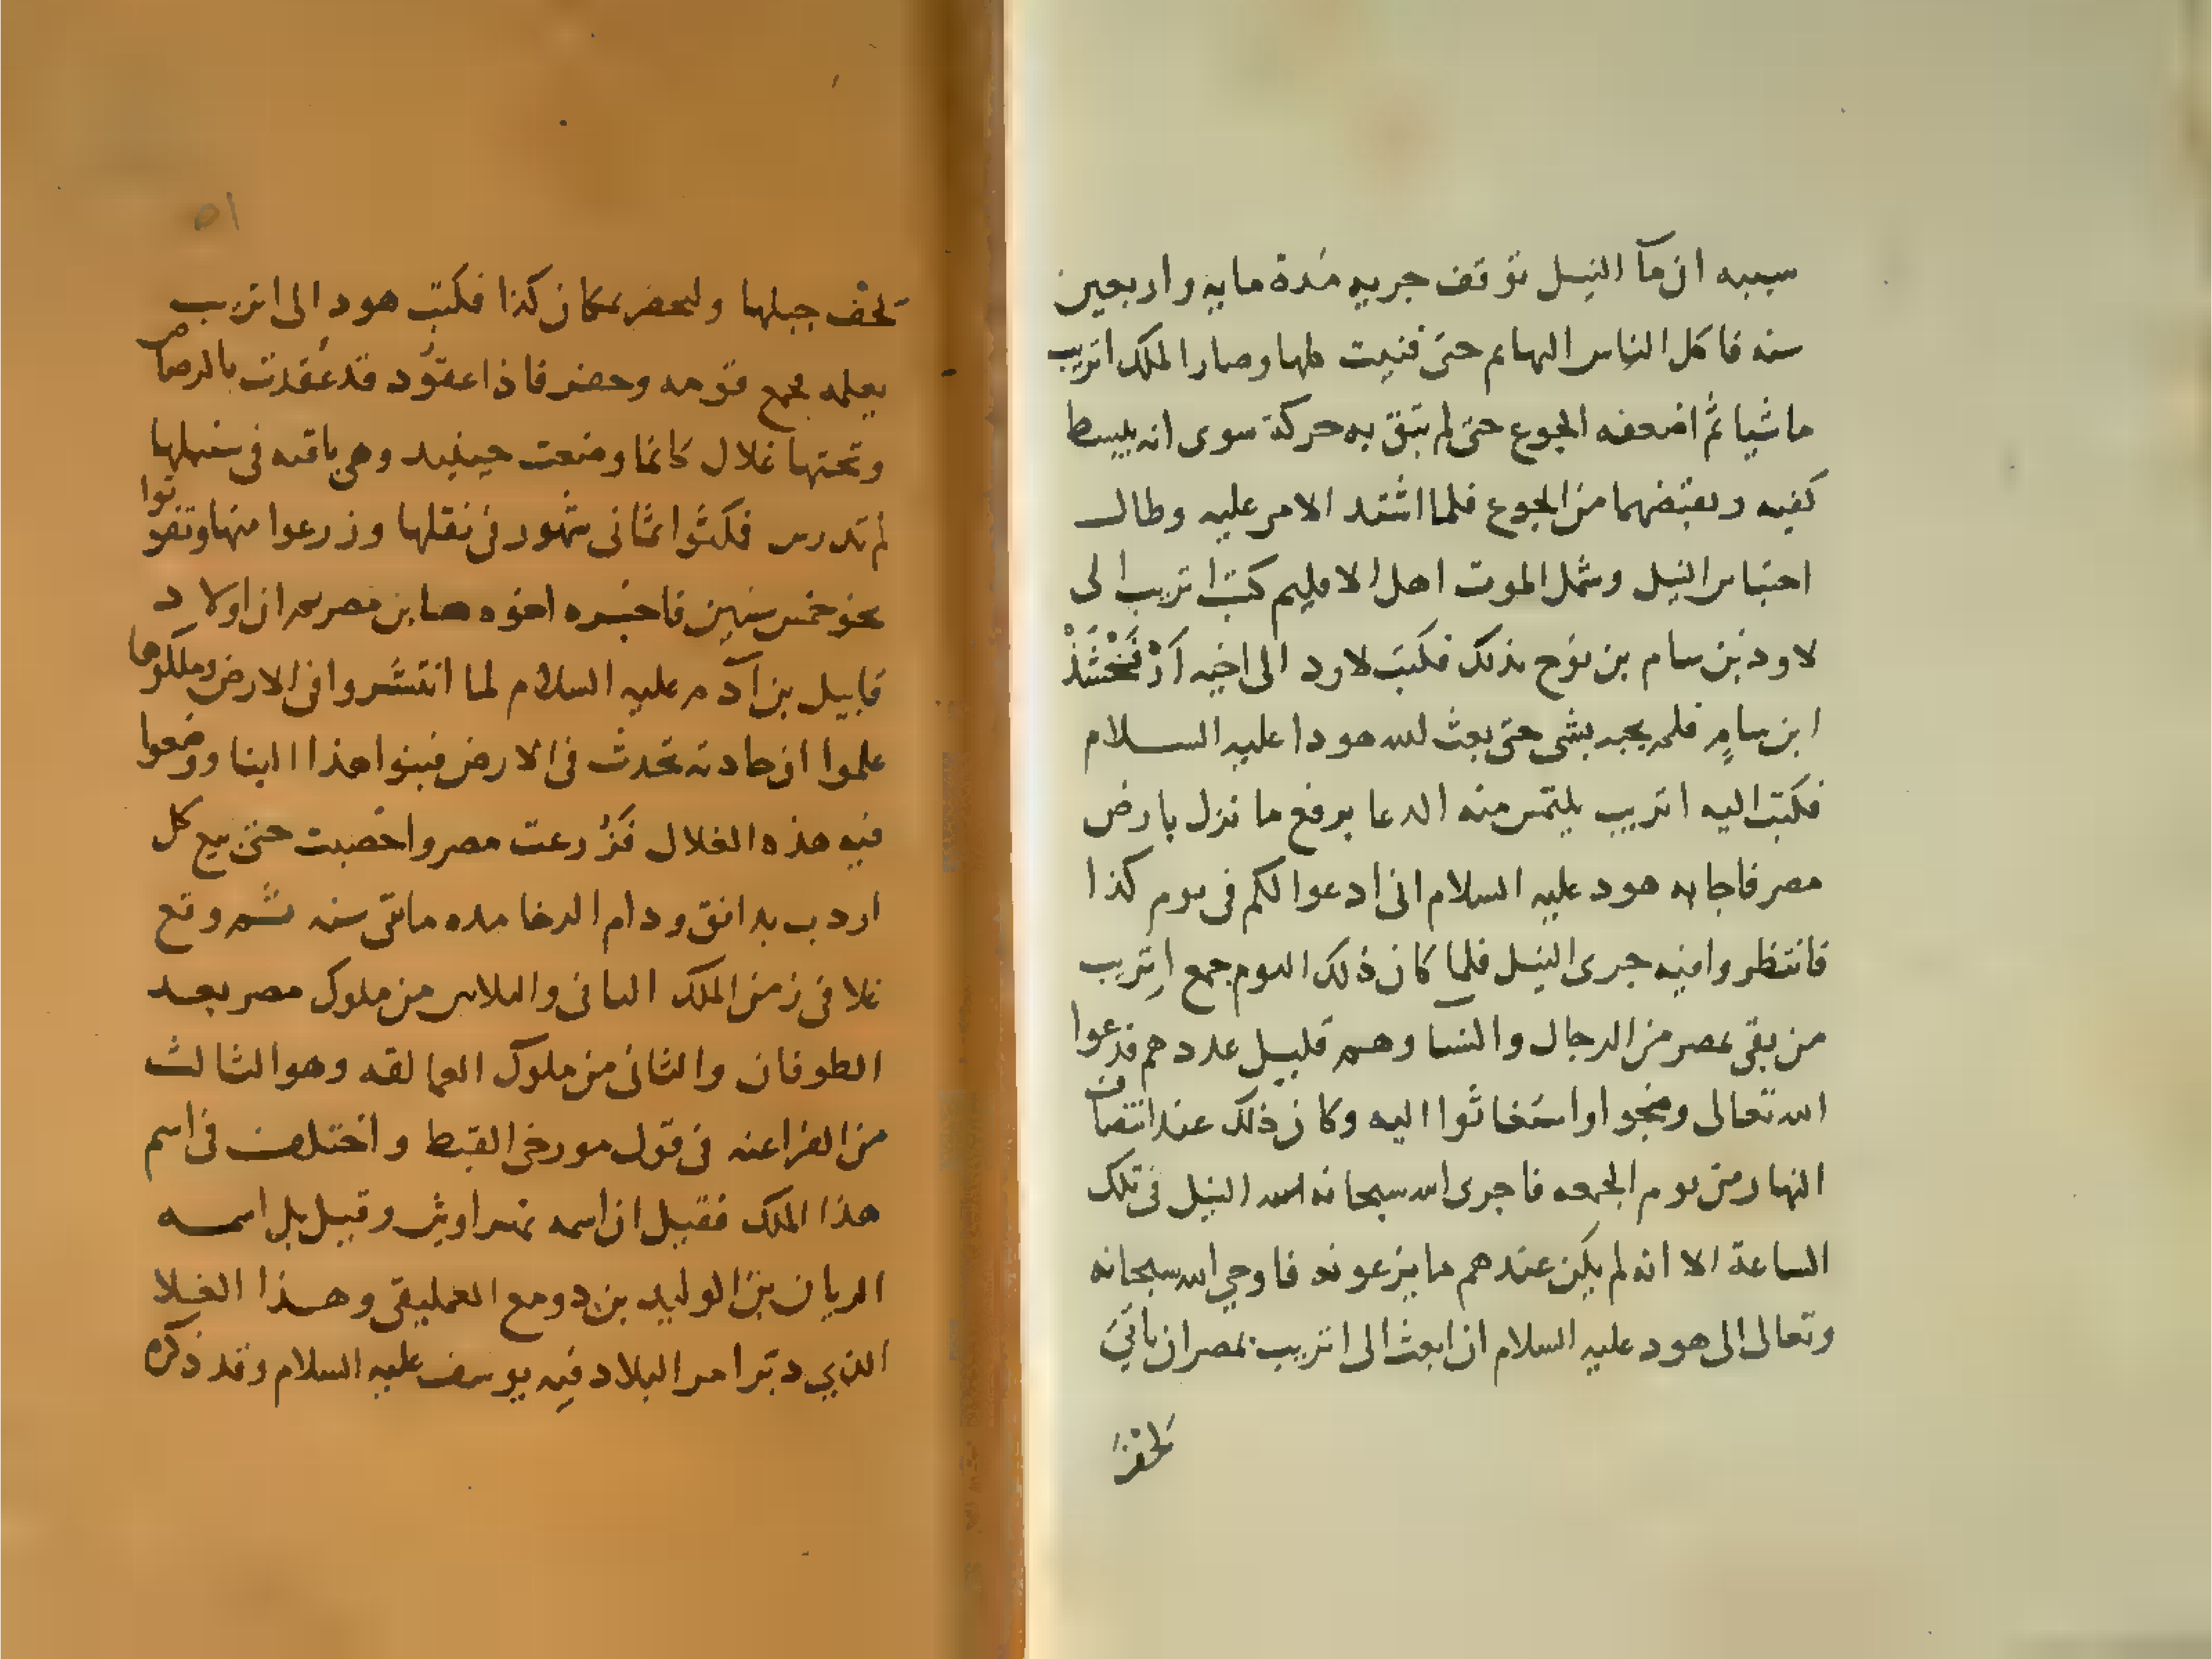 سببه ان مآ النيل توقف جريه مدة مايه واربعين
سنه فاكل الناس البهايم حتى فنيت كلها وصار الملك اتريب
ماشيا ثم اضعفه الجوع حتى لم تبق به حركة سوى انه يبسط
كفيه ويقبضهما من الجوع فلما اشتد الامر عليه وطال
احتباس النيل وشمل الموت اهل الاقليم كتب اتريب الى
لاود بن سام بن نوح بذلك فكتب لاود الى اخيه ارفخشذ
ابن سام فلم يجبه بشى حتى بعث الله هودا عليه السلام
فكتب اليه اتريب يلتمس منه الدعا برفع ما نزل بارض
مصر فاجابه هود عليه السلام انى ادعوا لكم فى يوم كذا
فانتظروا فيه جرى النيل فلما كان ذلك اليوم جمع اتريب
من بقى بمصر من الرجال والنسا وهم قليل عددهم فدعوا
الله تعالى وضجوا واستغاثوا اليه وكان ذلك عند انتصاف
النهار من يوم الجمعه فاجرى الله سبحانه النيل فى تلك
الساعة الا انه لم يكن عندهم ما يزعونه فاوحي الله سبحانه
وتعالى الى هود عليه السلام ان ابعث الى اتريب بمصر ان ياتي
لحف
٥١
لحف جبلها وليحفر بمكان كذا فكتب هود الى اتريب
يعلمه بجمع قومه وحفر فاذا عقود قد عقدت بالرصاص
وتحتها غلال كانما وضعت حينيد وهى باقيه فى سنبلها
لم تدرس فمكثوا ثمانى شهور فى نقلها وزرعوا منها وتقوتوا
نحو خمس سنين فاخبره اخوه صا بن مصريم ان اولاد
قابيل بن آدم عليه السلام لما انتشروا فى الارض وملكوها
علموا ان حادثه تحدث فى الارض فبنوا هذا البنا ووضعوا
فيه هذه الغلال فزرعت مصر واخصبت حتى بيع كل
اردب بدانق ودام الرخا مده مايتى سنه ثم وقع
غلا فى زمن الملك الثانى والثلاثين من ملوك مصر بعد
الطوفان والثانى من ملوك العمالقه وهو الثالث
من الفراعنه فى قول مورخى القبط واختلف فى اسم
هذا الملك فقيل ان اسمه نهراوش وقيل بل اسمه
الريان بن الوليد بن دومع العمليقى وهذا الغلا
الذي دبر امر البلاد فيه يوسف عليه السلام وقد ذكره